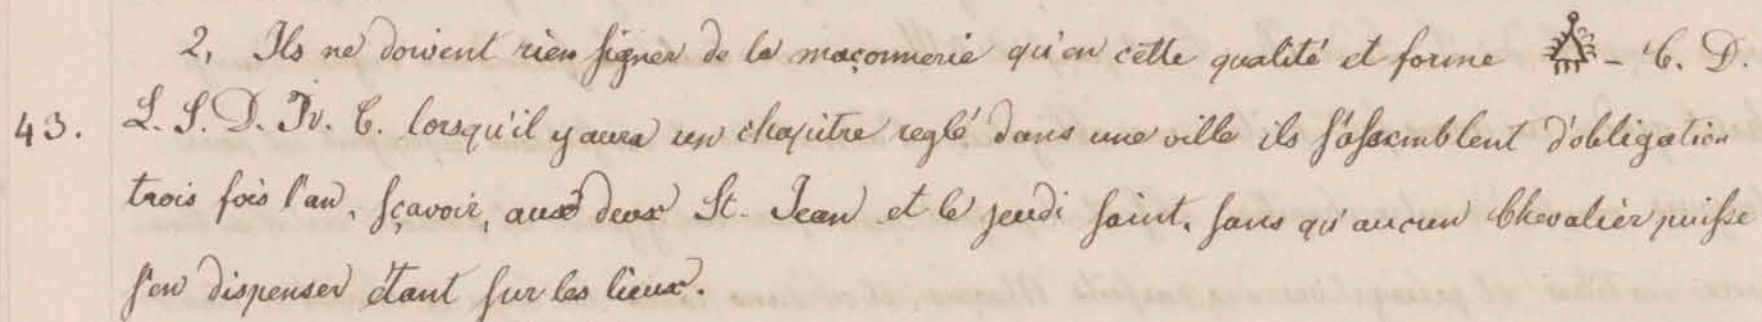 2, Ils ne doivent rien signer de la maçonnerie qu'en cette qualité et forme - C. D.
43. L. S. D. Tr. C. lorsqu'il y aura un chapitre reglé dans une ville ils s'assemblent d'obligation
trois fois l'an, sçavoir, aux deux St. Jean et le jeudi saint, sans qu'aucun Chevalier puisse
s'en dispenser étant sur les lieux.